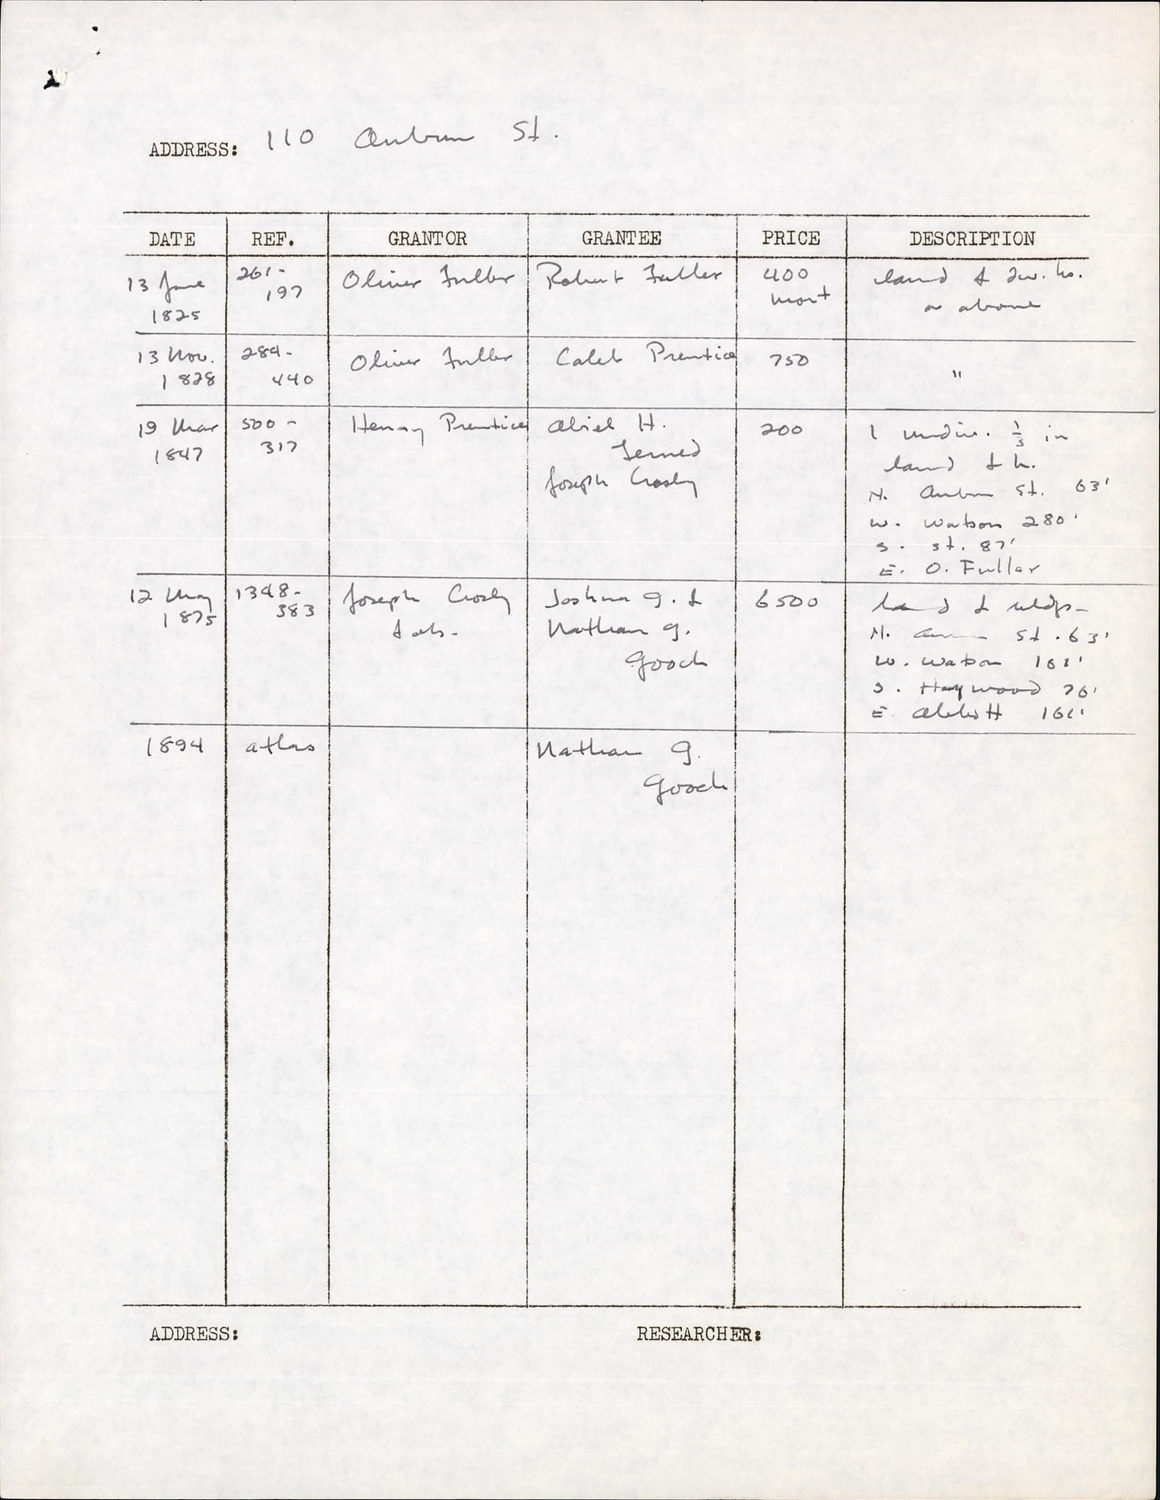 ADDRESS: 110 Auburn St.
DATE REF. GRANTOR GRANTEE PRICE DESCRIPTION
13 June 261- Oliver Fuller Robert Fuller 400 land & dw. ho.
1825 197 mort as above
13 Nov. 284- Oliver Fuller Caleb Prentice 750 "
1828 440
19 Mar 500- Henry Prentice Abiel H. 200 1 undiv. 1/3 in
1847 317 Joseph Crosby land & h.
N. Auburn St. 63'
W. Watson 280'
S. st. 87'
E. O. Fuller
12 May 1348- Joseph Crosby Joshua G. & 6500 land & bldgs-
1875 383 Nathan G. N. St. 63'
Gooch W. Watson
S. Haywood 76'
E Abbott
1894 atlas Nathan G.
Gooch
ADDRESS: RESEARCHER: